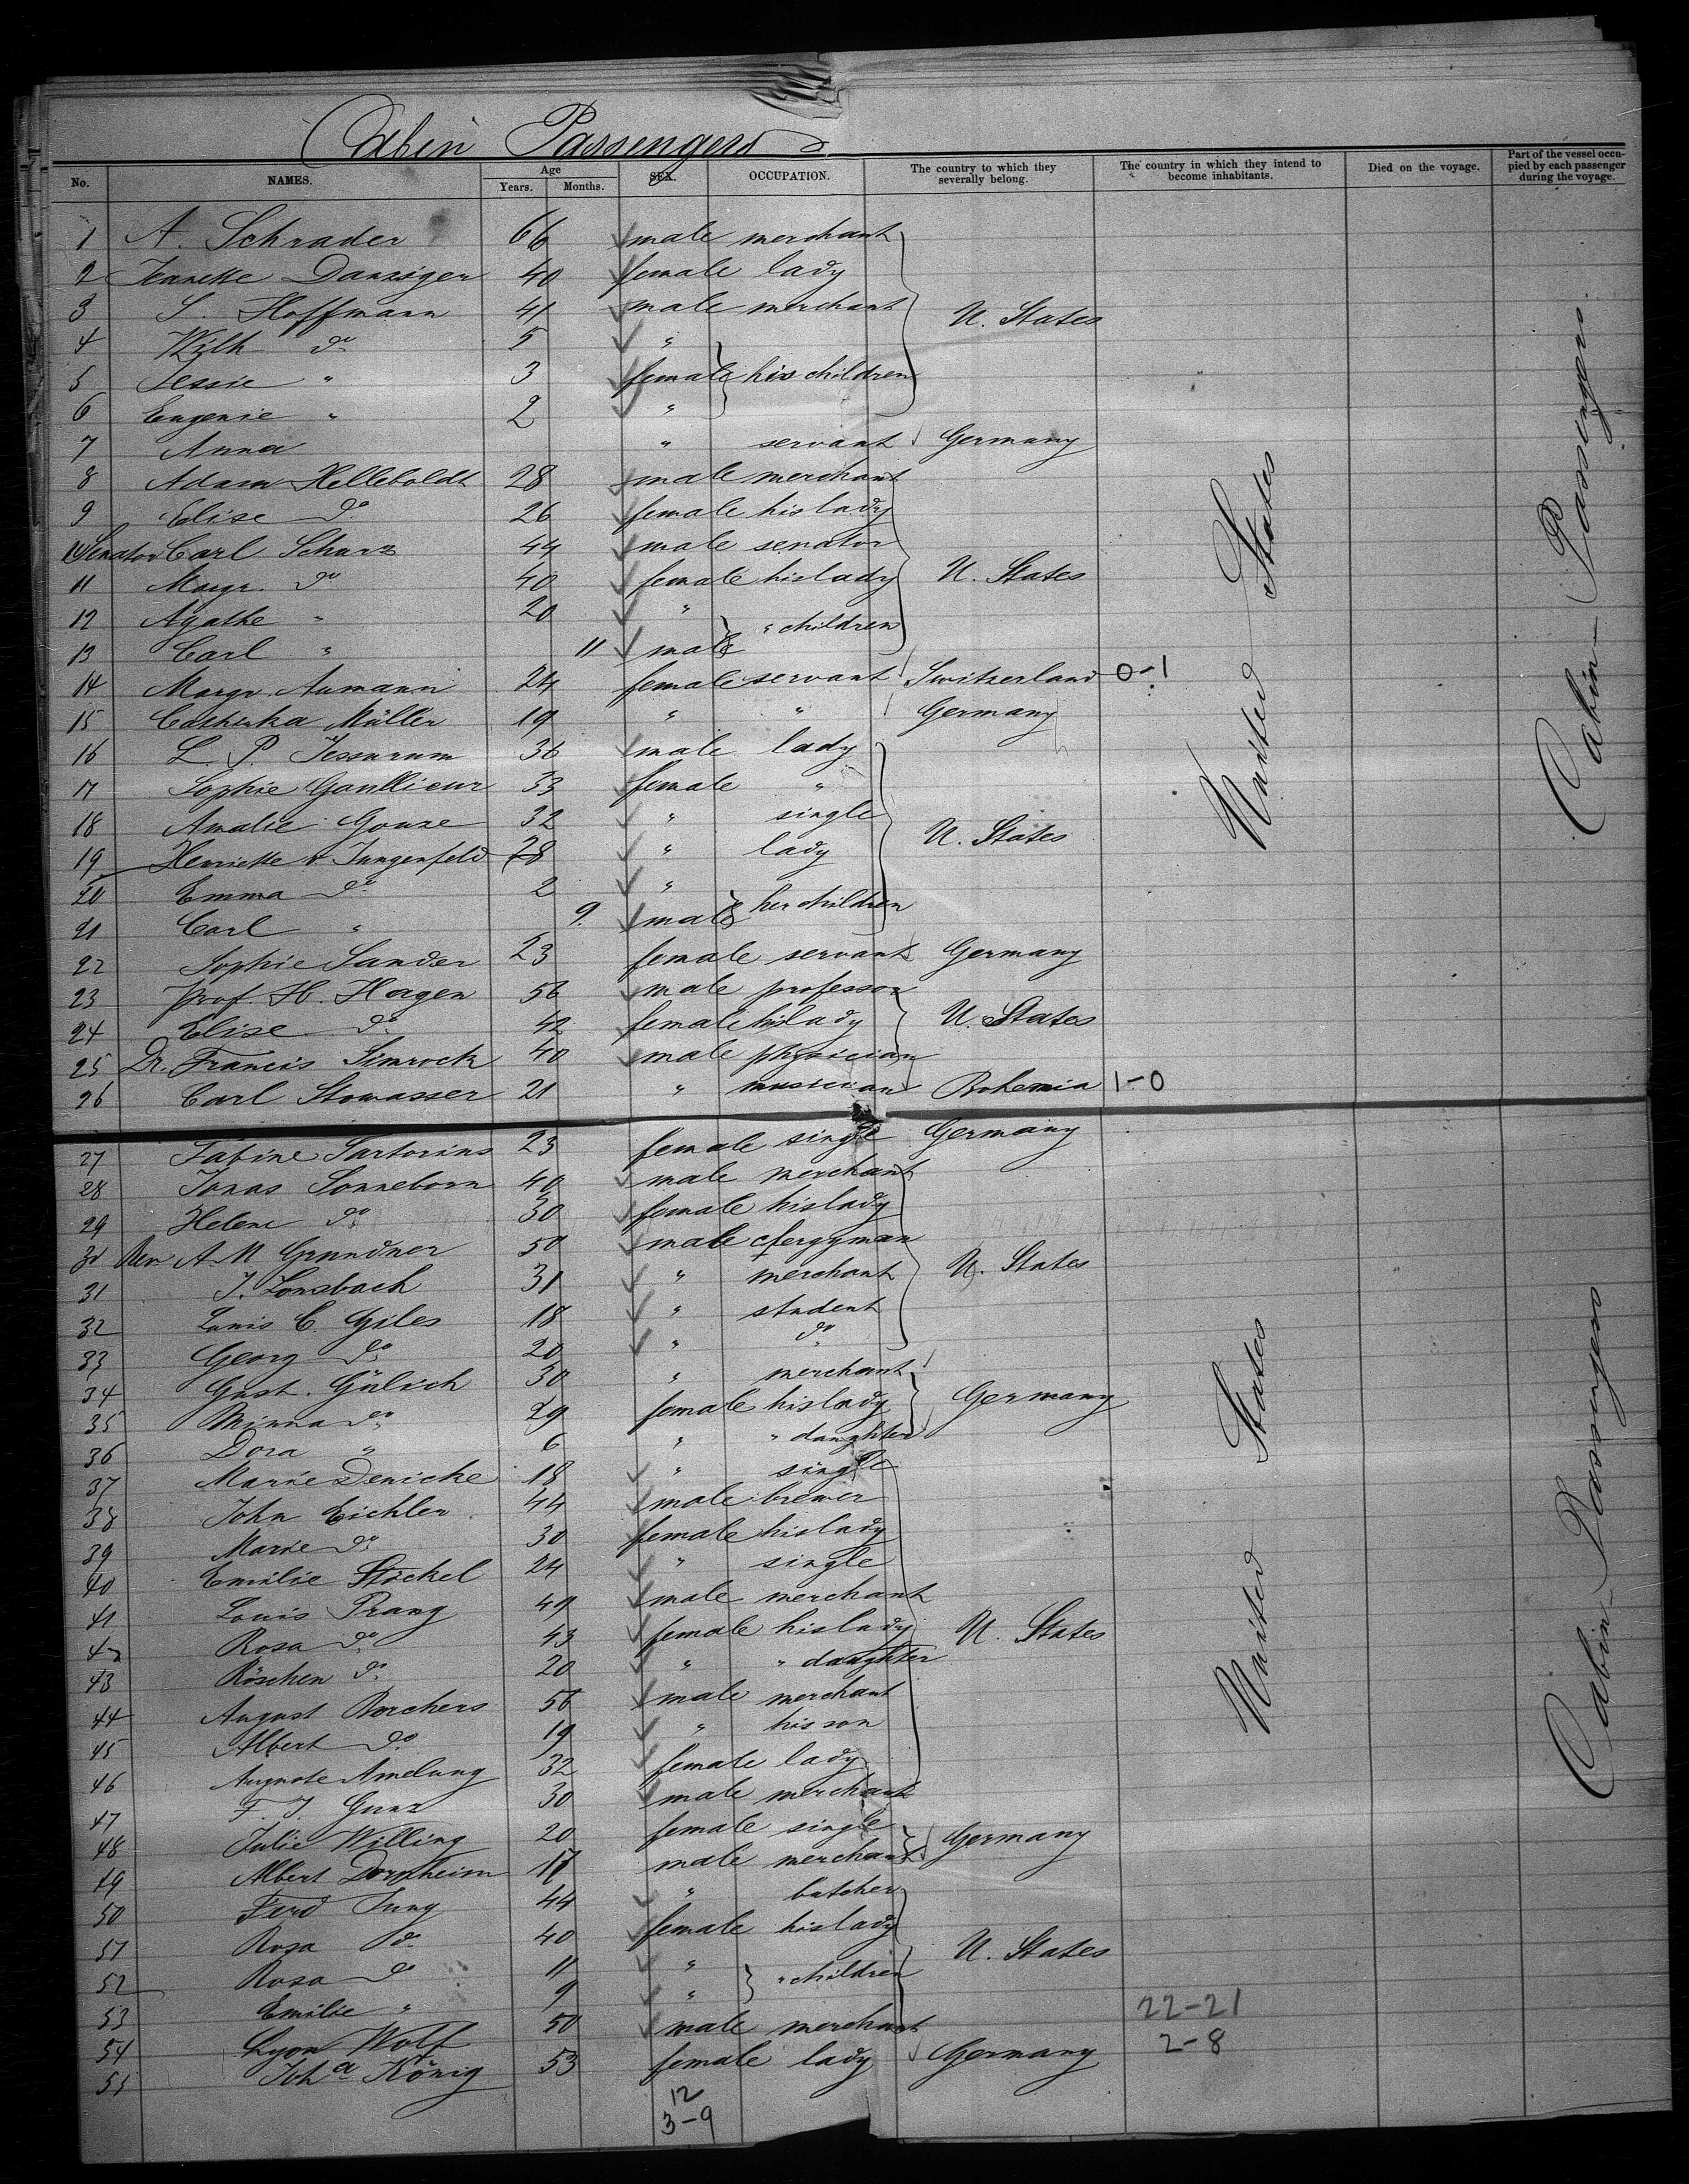 Cabin Passengers
No. NAMES. Age Years. Months. SEX. OCCUPATION. The country to which they severally belong. The country in which they intend to become inhabitants. Died on the voyage. Part of the vessel occupied by each passenger during the voyage.
1 A. Schrader 66 male merchant
2 Jeanette Danziger 40 female lady
3 S. Hoffmann 41 male merchant U. States
4 Wilh do 5 "
5 Jessie " 3 female his children
6 Eugenie " 2 "
7 Anna " servant Germany
8 Adam Helleboldt 28 male merchant
9 Elise do 26 female his lady
10 Senator Carl Schurz 44 male senator
11 Margr. do 40 female his lady U. States
12 Agathe " 20 " " children
13 Carl " 11 male
14 Margr. Aumann 24 female servant Switzerland 0-1
15 Müller 19 " " Germany
16 L. P. Jessurum 36 male lady
17 Sophie Gaullieur 33 female "
18 Amalie Gouze 32 " single U. States
19 Henriette v Jungenfeld 28 " lady
20 Emma do 2 "
21 Carl " 9. male her children
22 Sophie Sander 23 female servant Germany
23 Prof. H. Hagen 56 male professor
24 Elise do 42 female his lady U. States
25 Dr. Francis Simrock 40 male physician
26 Carl Stowasser 21 " musician Bohemia 1-0
27 Sabine Sartorius 23 female single Germany
28 Jonas Sonneborn 40 male merchant
29 Helene do 30 female his lady
30 Rev A. M Grundner 50 male clergyman
31 J. Lonsbach 31 " merchant U. States
32 Louis C. Giles 18 " student
33 Georg do 20 " do
34 Gust. Gülich 30 " merchant
35 Minna do 29 female his lady Germany
36 Dora " 6 " " daughter
37 Marie Denicke 18 " single
38 John Eichler 44 male brewer
39 Marie do 30 female his lady
40 Emilie Stöckel 24 " single
41 Louis Prang 49 male merchant
42 Rosa do 43 female his lady U. States
43 Röschen do 20 " " daughter
44 August Borchers 56 male merchant
45 Albert do 19 " his son
46 Auguste Amelung 32 female lady
47 F. J. Gunz 30 male merchant
48 Julie Willing 20 female single Germany
49 Albert Dornheim 17 male merchant
50 Ferd Jung 44 " butcher
51 Rosa do 40 female his lady
52 Rosa do 11 " " children U. States
53 Emilie " 9 "
54 Lyon Wolf 50 male merchant 22-21
55 Joha König 53 female lady Germany 2-8
12
3-9
United States
Cabin Passengers
United States
Cabin Passengers